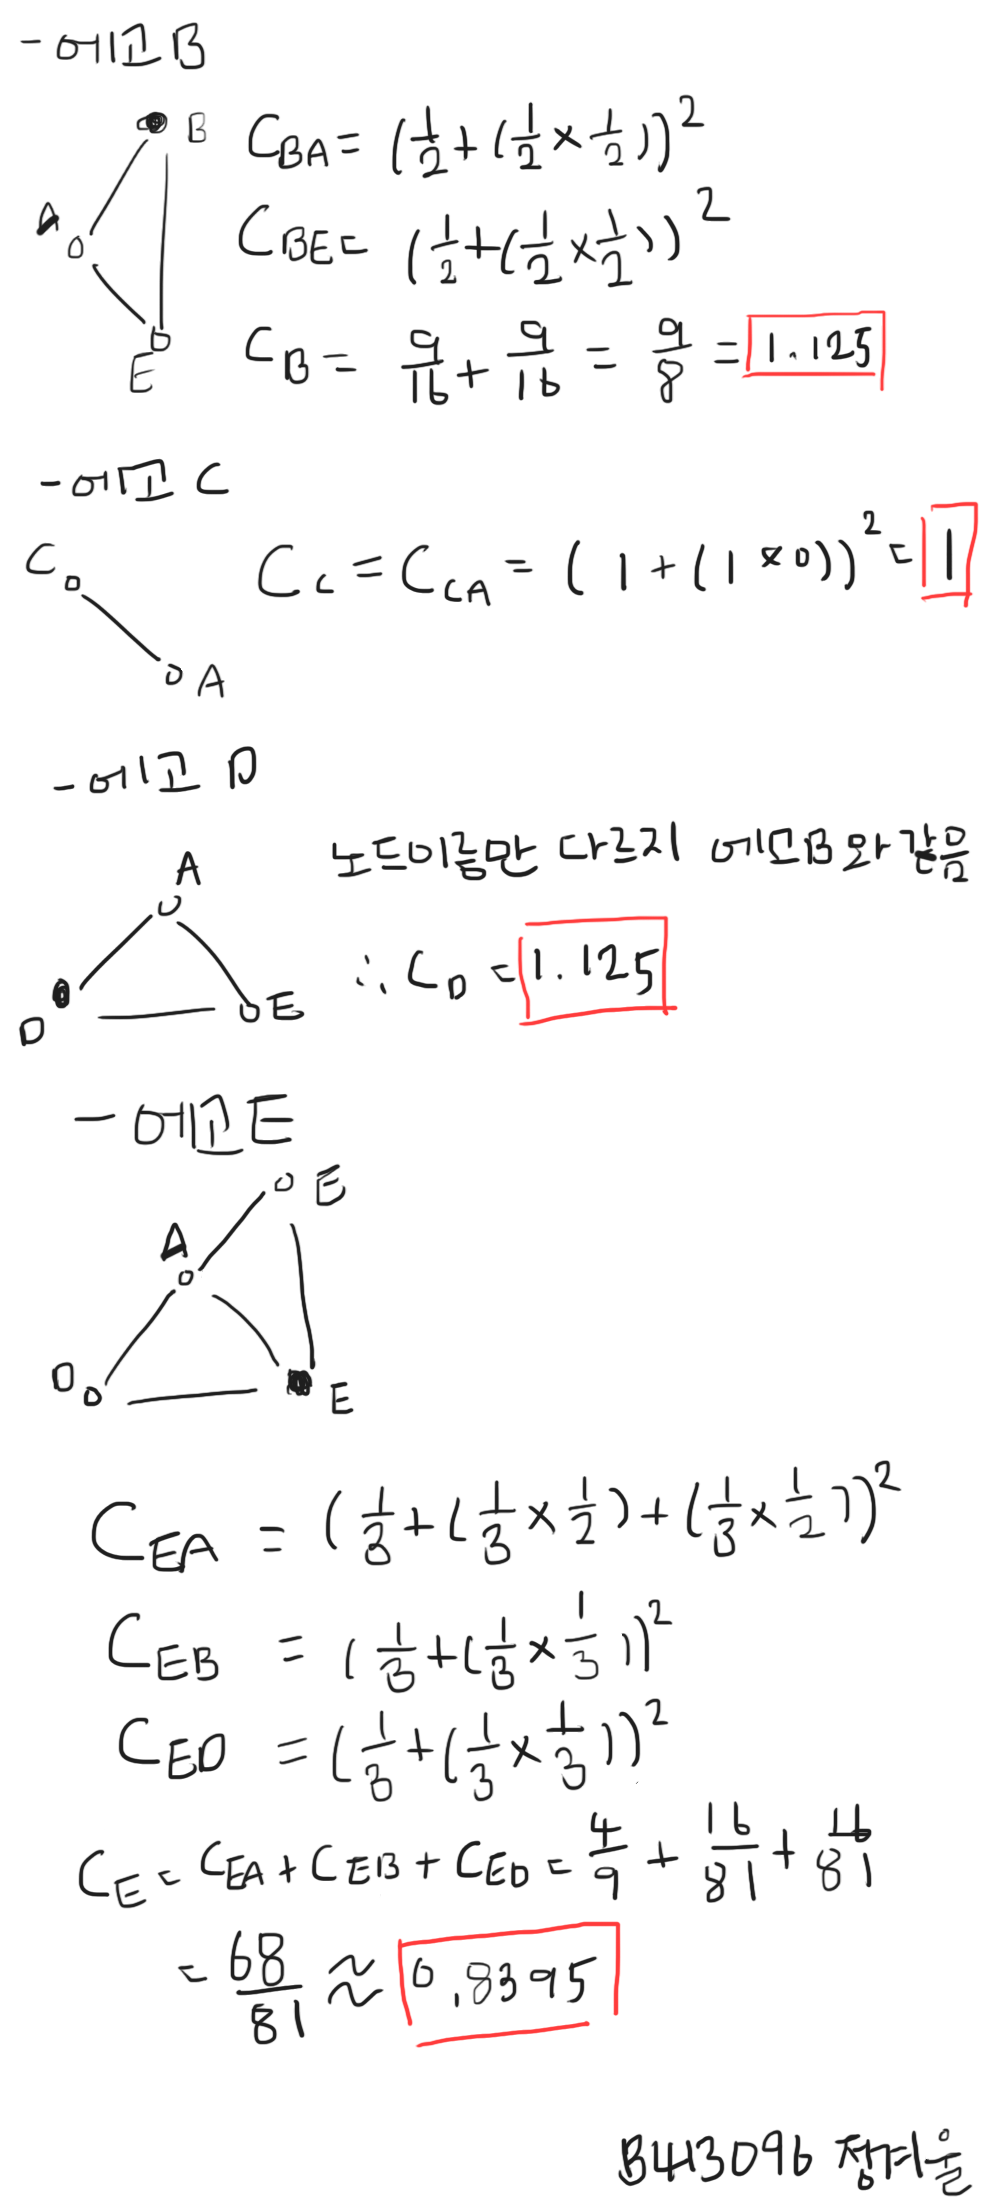 - 에고B
B
A
E
C_BA = (1/2 + (1/2 × 1/2))²
C_BE = (1/2 + (1/2 × 1/2))²
C_B = 9/16 + 9/16 = 9/8 = 1.125
- 에고 C
C
A
C_C = C_CA = (1 + (1 × 0))² = 1
- 에고 D
A
D
E
노드이름만 다르지 에고B와 같음
∴ C_D = 1.125
- 에고E
E
A
D
E
C_EA = (1/3 + (1/3 × 1/2) + (1/3 × 1/2))²
C_EB = (1/3 + (1/3 × 1/3))²
C_ED = (1/3 + (1/3 × 1/3))²
C_E = C_EA + C_EB + C_ED = 4/9 + 16/81 + 16/81
= 68/81 ≈ 0.8395